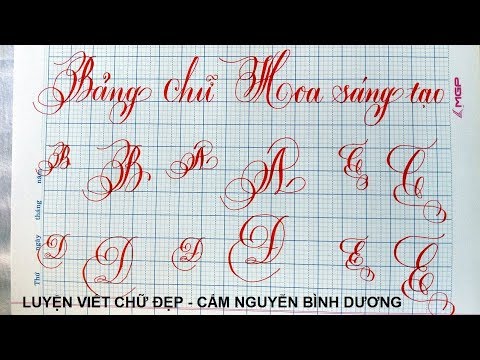 Bảng chữ Hoa sáng tạo
MGP
B B
D D D D
Thứ ngày tháng năm
LUYỆN VIẾT CHỮ ĐẸP - CẨM NGUYỄN BÌNH DƯƠNG